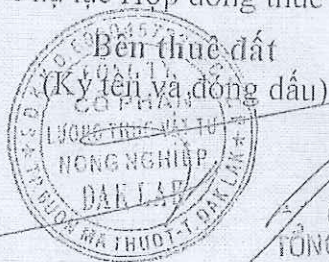 Hợp đồng thuê
Bên thuê đất
(Ký tên và đóng dấu)
CÔNG TY
CỔ PHẦN
LƯƠNG THỰC VẬT TƯ
NÔNG NGHIỆP
DAK LAK
TP. BUÔN MA THUỘT-T. DAK LAK
TỔNG